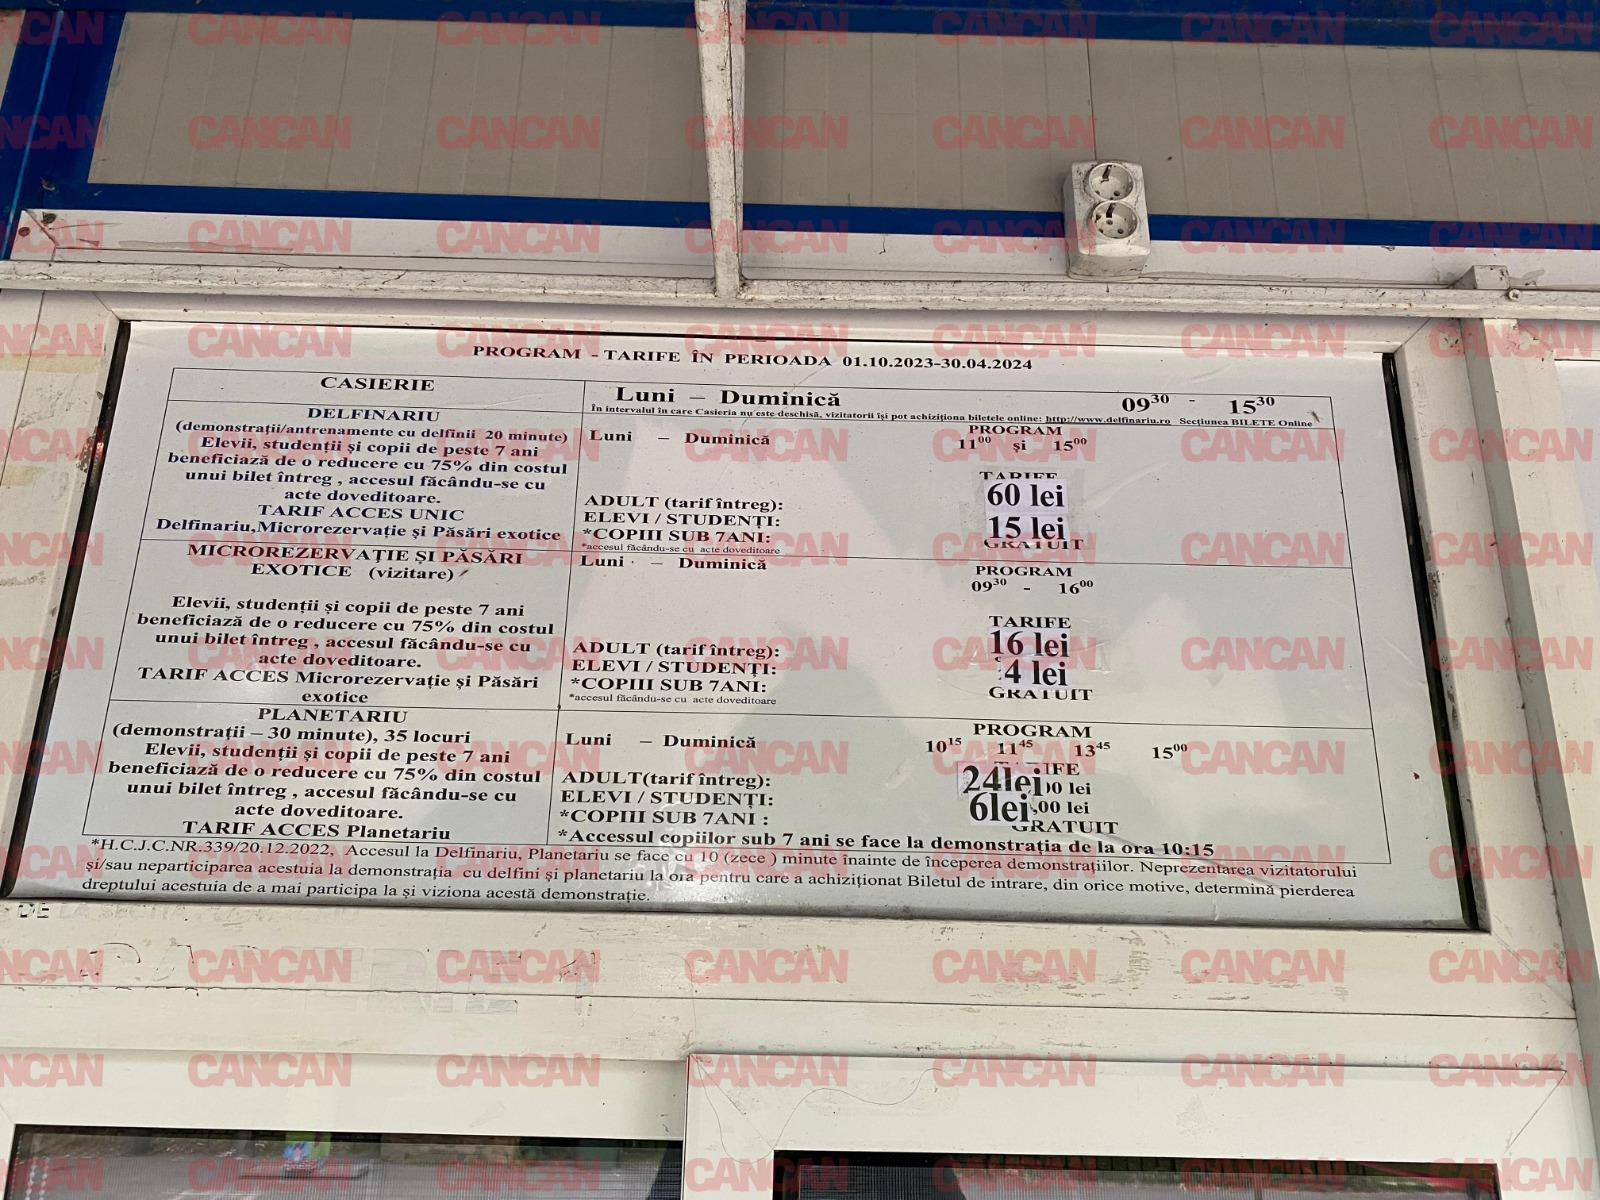 PROGRAM - TARIFE ÎN PERIOADA 01.10.2023-30.04.2024
CASIERIE
Luni – Duminică 09³⁰ - 15³⁰
În intervalul în care Casieria nu este deschisă, vizitatorii își pot achiziționa biletele online: http://www.delfinariu.ro Secțiunea BILETE Online
DELFINARIU
(demonstrații/antrenamente cu delfinii 20 minute)
Elevii, studenții și copii de peste 7 ani
beneficiază de o reducere cu 75% din costul
unui bilet întreg , accesul făcându-se cu
acte doveditoare.
TARIF ACCES UNIC
Delfinariu,Microrezervație și Păsări exotice
Luni – Duminică
PROGRAM
11⁰⁰ și 15⁰⁰
TARIFE
ADULT (tarif întreg): 60 lei
ELEVI / STUDENȚI: 15 lei
*COPIII SUB 7ANI: GRATUIT
*accesul făcându-se cu acte doveditoare
MICROREZERVAȚIE ȘI PĂSĂRI
EXOTICE (vizitare)
Elevii, studenții și copii de peste 7 ani
beneficiază de o reducere cu 75% din costul
unui bilet întreg , accesul făcându-se cu
acte doveditoare.
TARIF ACCES Microrezervație și Păsări
exotice
Luni – Duminică
PROGRAM
09³⁰ - 16⁰⁰
TARIFE
ADULT (tarif întreg): 16 lei
ELEVI / STUDENȚI: 4 lei
*COPIII SUB 7ANI: GRATUIT
*accesul făcându-se cu acte doveditoare
PLANETARIU
(demonstrații – 30 minute), 35 locuri
Elevii, studenții și copii de peste 7 ani
beneficiază de o reducere cu 75% din costul
unui bilet întreg , accesul făcându-se cu
acte doveditoare.
TARIF ACCES Planetariu
Luni – Duminică
PROGRAM
10¹⁵ 11⁴⁵ 13⁴⁵ 15⁰⁰
ADULT(tarif întreg): 24lei
ELEVI / STUDENȚI: 6lei
*COPIII SUB 7ANI : GRATUIT
*Accessul copiilor sub 7 ani se face la demonstrația de la ora 10:15
*H.C.J.C.NR.339/20.12.2022, Accesul la Delfinariu, Planetariu se face cu 10 (zece ) minute înainte de începerea demonstrațiilor. Neprezentarea vizitatorului
și/sau neparticiparea acestuia la demonstrația cu delfini și planetariu la ora pentru care a achiziționat Biletul de intrare, din orice motive, determină pierderea
dreptului acestuia de a mai participa la și viziona acestă demonstrație.
CANCAN